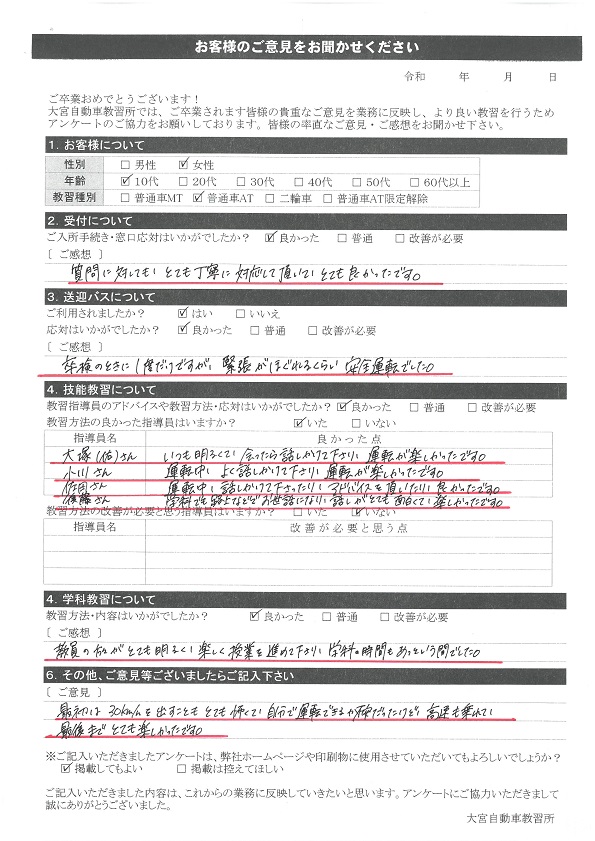 お客様のご意見をお聞かせください
令和 年 月 日
ご卒業おめでとうございます！
大宮自動車教習所では、ご卒業されます皆様の貴重なご意見を業務に反映し、より良い教習を行うため
アンケートのご協力をお願いしております。皆様の率直なご意見・ご感想をお聞かせ下さい。
1. お客様について
性別 □ 男性 ☑ 女性
年齢 ☑ 10代 □ 20代 □ 30代 □ 40代 □ 50代 □ 60代以上
教習種別 □ 普通車MT ☑ 普通車AT □ 二輪車 □ 普通車AT限定解除
2. 受付について
ご入所手続き・窓口応対はいかがでしたか？ ☑ 良かった □ 普通 □ 改善が必要
［ ご感想 ］
質問に対しても、とても丁寧に対応して頂いてとても良かったです。
3. 送迎バスについて
ご利用されましたか？ ☑ はい □ いいえ
応対はいかがでしたか？ ☑ 良かった □ 普通 □ 改善が必要
［ ご感想 ］
のときに1度だけですが、緊張がほぐれるくらい安全運転でした。
4. 技能教習について
教習指導員のアドバイスや教習方法・応対はいかがでしたか？ ☑ 良かった □ 普通 □ 改善が必要
教習方法の良かった指導員はいますか？ ☑ いた □ いない
指導員名 良かった点
大塚(佑)さん いつも明るくて、会ったら話しかけて下さり、運転が楽しかったです。
小川さん 運転中、よく話しかけて下さり、運転が楽しかったです。
さん 運転中、話しかけて下さったり、アドバイスを頂いたりと良かったです。
後藤さん 学科でも路上などでお世話になり、話しがとても面白くて楽しかったです。
教習方法の改善が必要と思う指導員はいますか？ □ いた ☑ いない
指導員名 改善が必要と思う点
4. 学科教習について
教習方法・内容はいかがでしたか？ ☑ 良かった □ 普通 □ 改善が必要
［ ご感想 ］
教員の がとても明るく、楽しく授業を進めて下さり、学科の時間もあっという間でした。
6. その他、ご意見等ございましたらご記入下さい
［ ご意見 ］
最初は30km/hを出すこともとても怖くて、自分で運転できるか だったけど、高速も乗れて、
最後までとても楽しかったです。
※ご記入いただきましたアンケートは、弊社ホームページや印刷物に使用させていただいてもよろしいでしょうか？
☑ 掲載してもよい □ 掲載は控えてほしい
ご記入いただきました内容は、これからの業務に反映していきたいと思います。アンケートにご協力いただきまして
誠にありがとうございました。
大宮自動車教習所